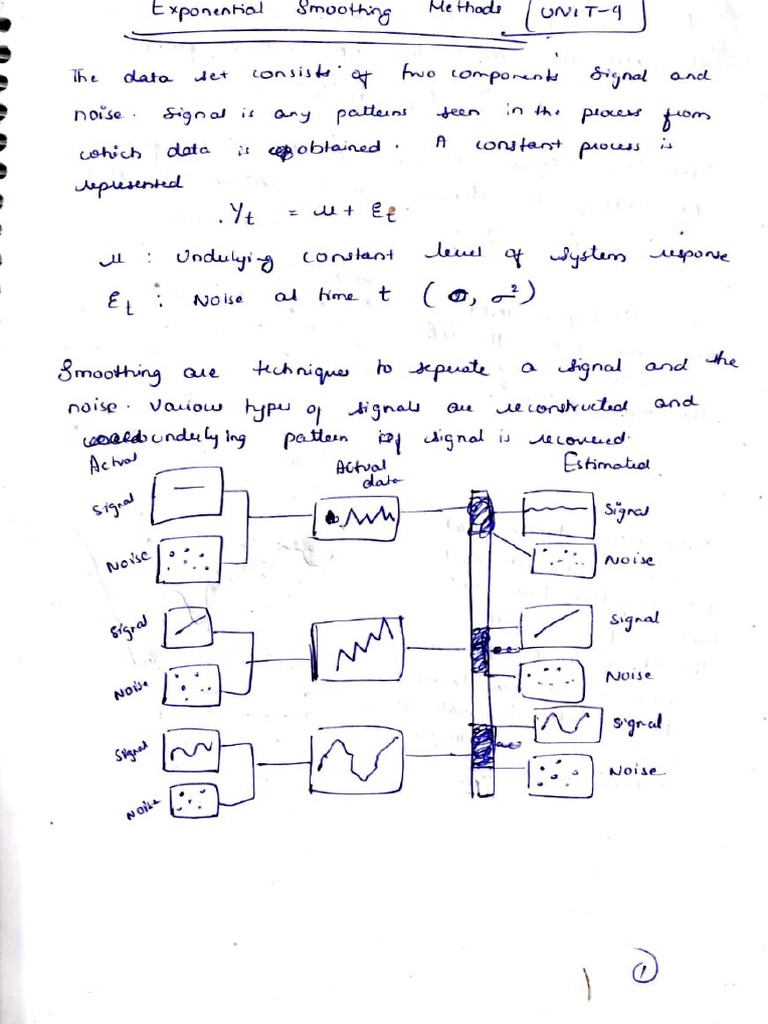 Exponential Smoothing Methods UNIT-4
The data set consists of two components signal and
noise. Signal is any patterns seen in the process from
which data is obtained. A constant process is
represented
Yt = μ + Ɛt
μ : Undulying constant level of system response
Ɛt : Noise at time t (0, σ²)
Smoothing are techniques to seperate a signal and the
noise. Various types of signals are reconstructed and
undulying pattern of signal is recovered.
Actual Actual data Estimated
Signal Signal
Noise Noise
Signal Signal
Noise Noise
Signal Signal
Noise Noise
1